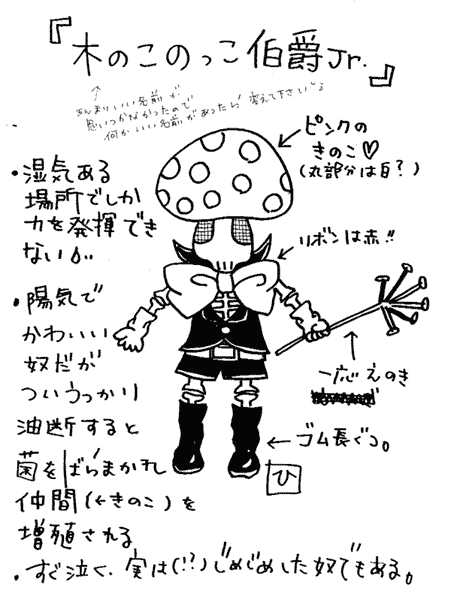 『木のこのっこ伯爵Jr.』
↑
あんまりいい名前が
思いつかなかったので
何かいい名前があったら変えて下さい″♪
ピンクの
きのこ♡
(丸部分は白?)
・湿気ある
場所でしか
力を発揮でき
ない
リボンは赤!!
・陽気で
かわいい
奴だが
ついうっかり
油断すると
菌をばらまかれ
仲間(←きのこ)を
増殖される
一応えのき
←ゴム長ぐつ。
ひ
・すぐ泣く、実は(!?)じめじめした奴でもある。